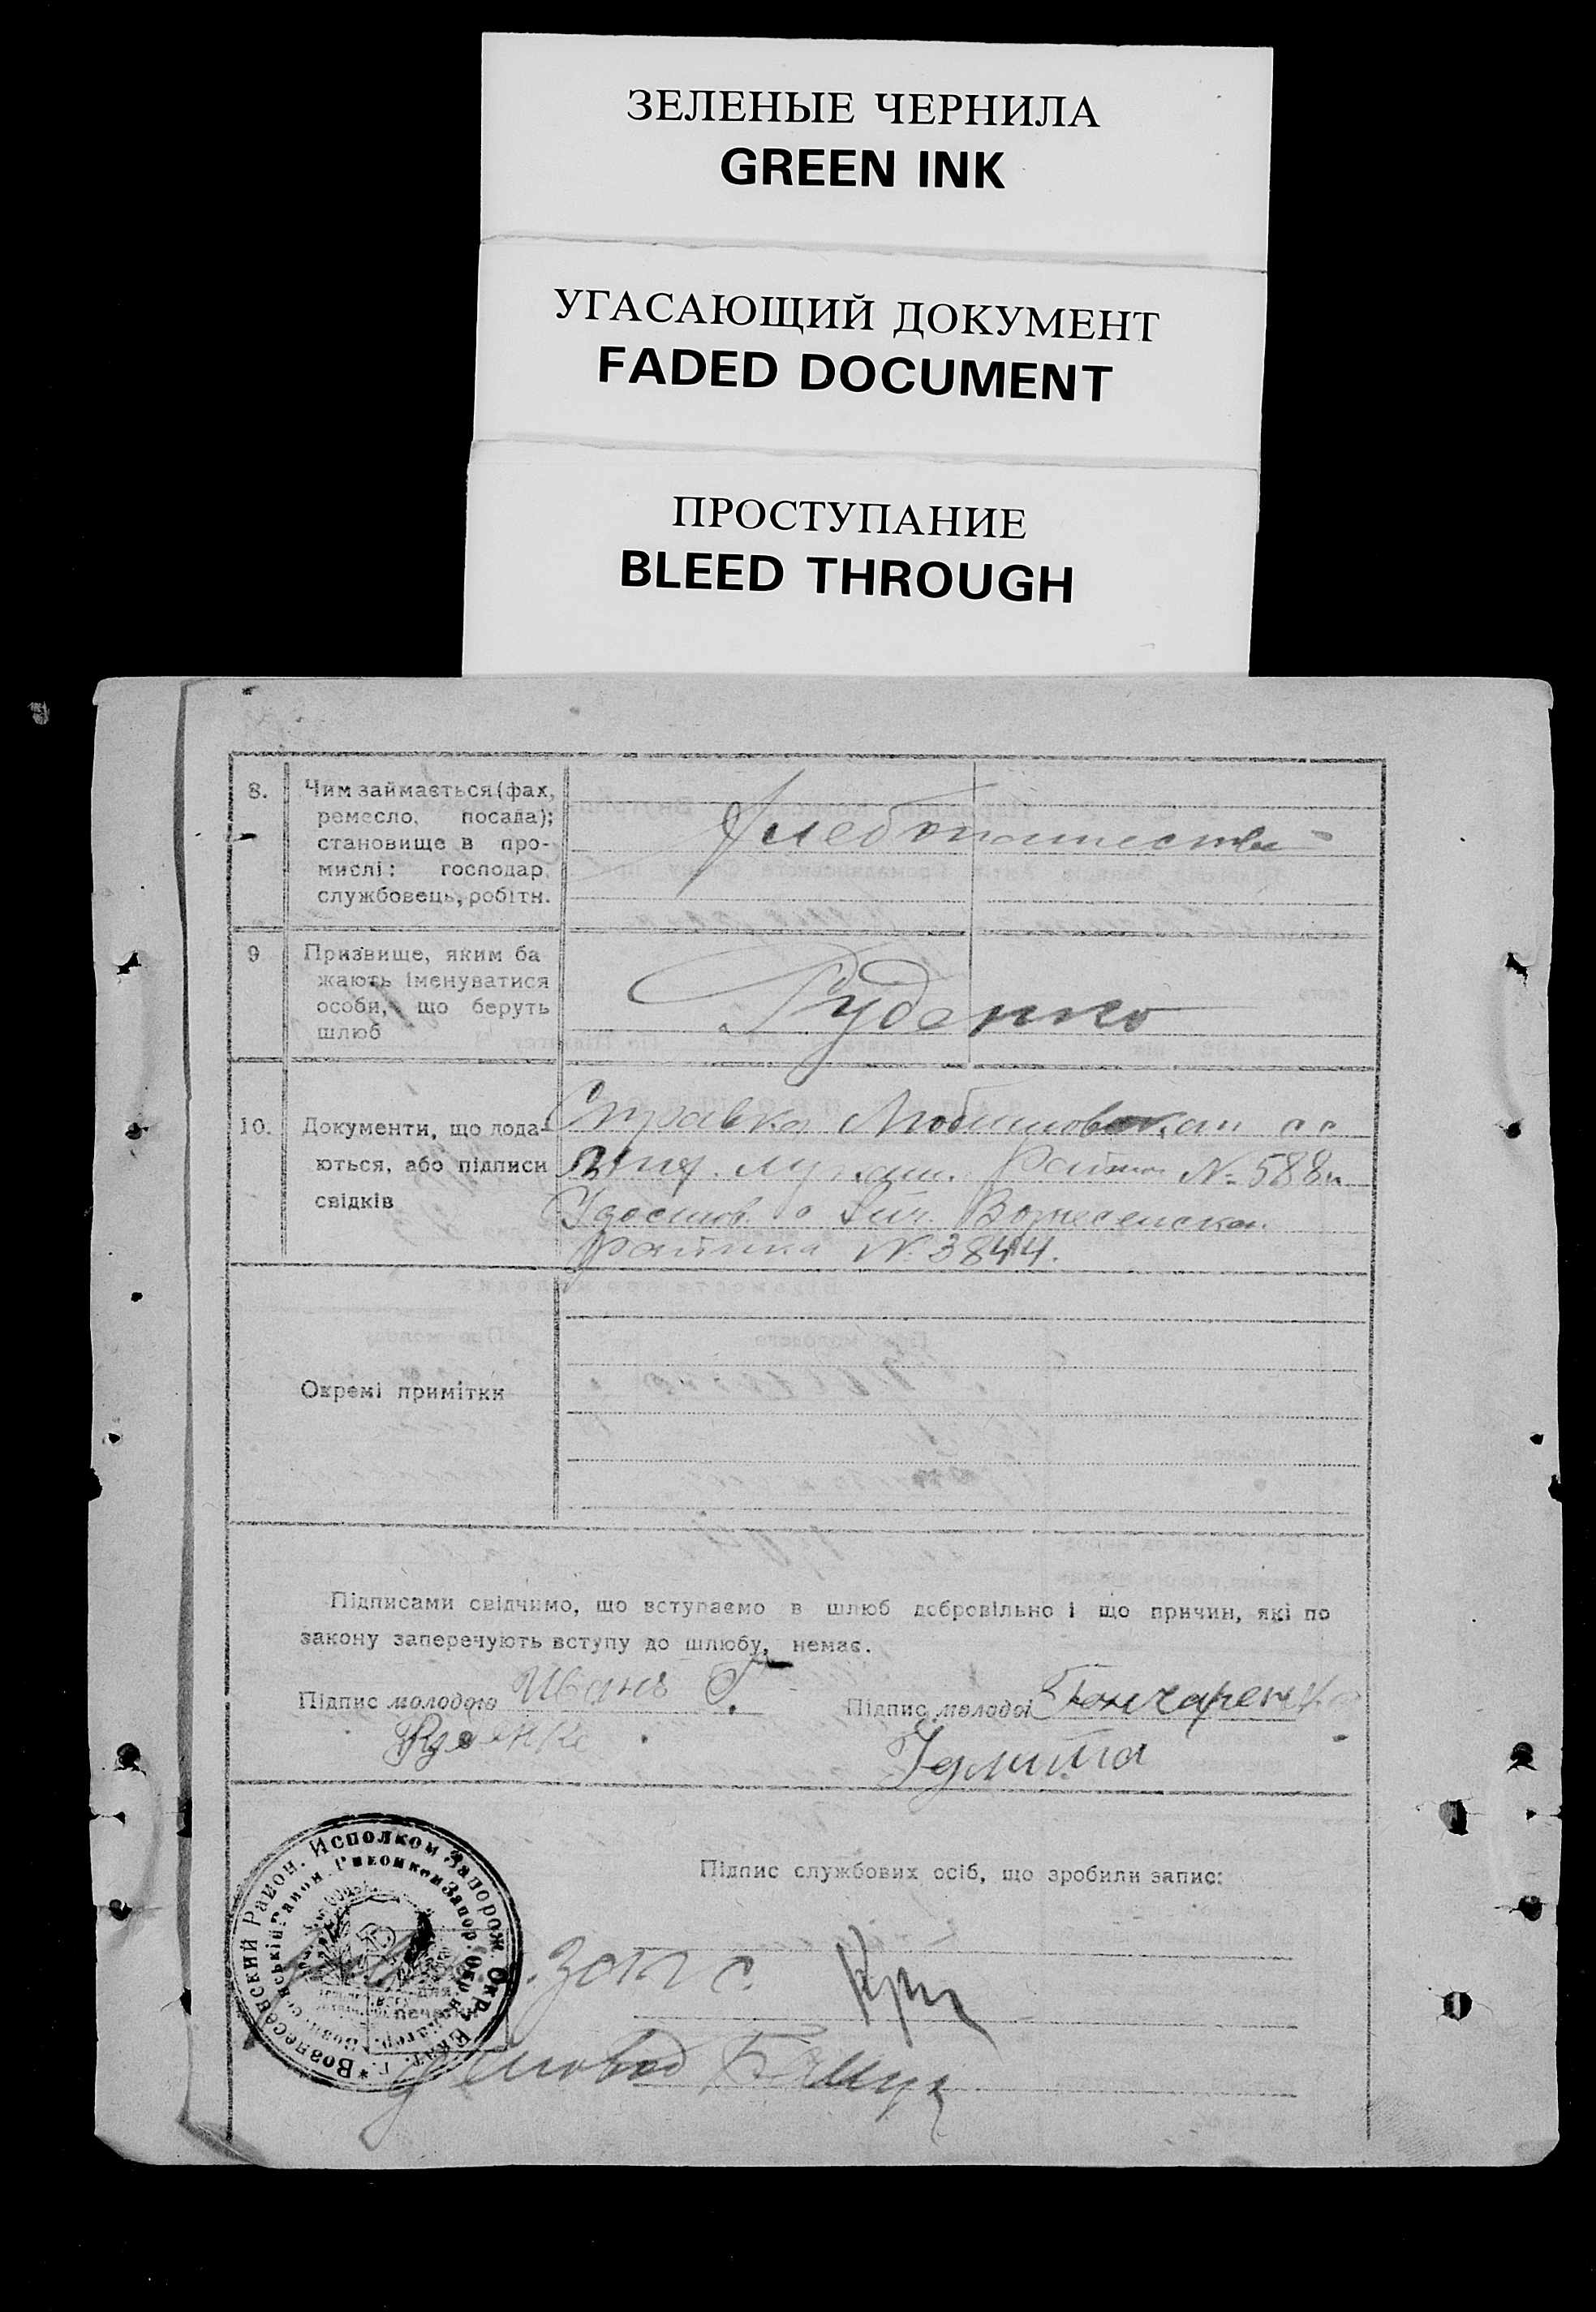 ЗЕЛЕНЫЕ ЧЕРНИЛА
GREEN INK
УГАСАЮЩИЙ ДОКУМЕНТ
FADED DOCUMENT
ПРОСТУПАНИЕ
BLEED THROUGH
8. Чим займається (фах,
ремесло, посада);
становище в про-
мислі: господар,
службовець, робітн.
Хлебопашества
9 Призвище, яким ба
жають іменуватися
особи, що беруть
шлюб
Руденко
10. Документи, що дода-
ються, або підписи
свідків
Справка
№ 588
о Вознесенскаго
Райвика № 3844.
Окремі примітки
Підписами свідчимо, що вступаємо в шлюб добровільно і що причин, які по
закону заперечують вступу до шлюбу, немає.
Підпис молодого Иванъ
Руденко
Підпис молодої Гончаренко
Улита
Підпис службових осіб, що зробили запис:
Вознесенский Район. Исполком Запорож. Окр. Екат. г.
Загс